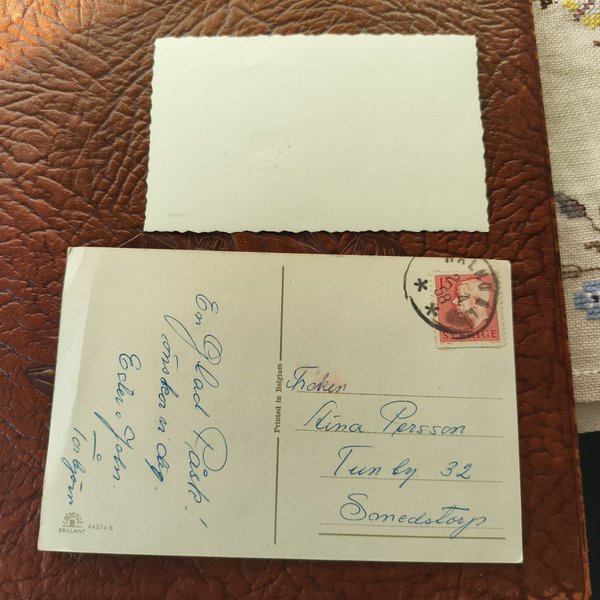 En Glad Påsk!
önskar vi dig.
Ester o John.
o
Torbjörn
BRILLANT 44374 B
Printed in Belgium
MALMÖ
15
SVERIGE
Fröken
Stina Persson
Tunby 32
Smedstorp